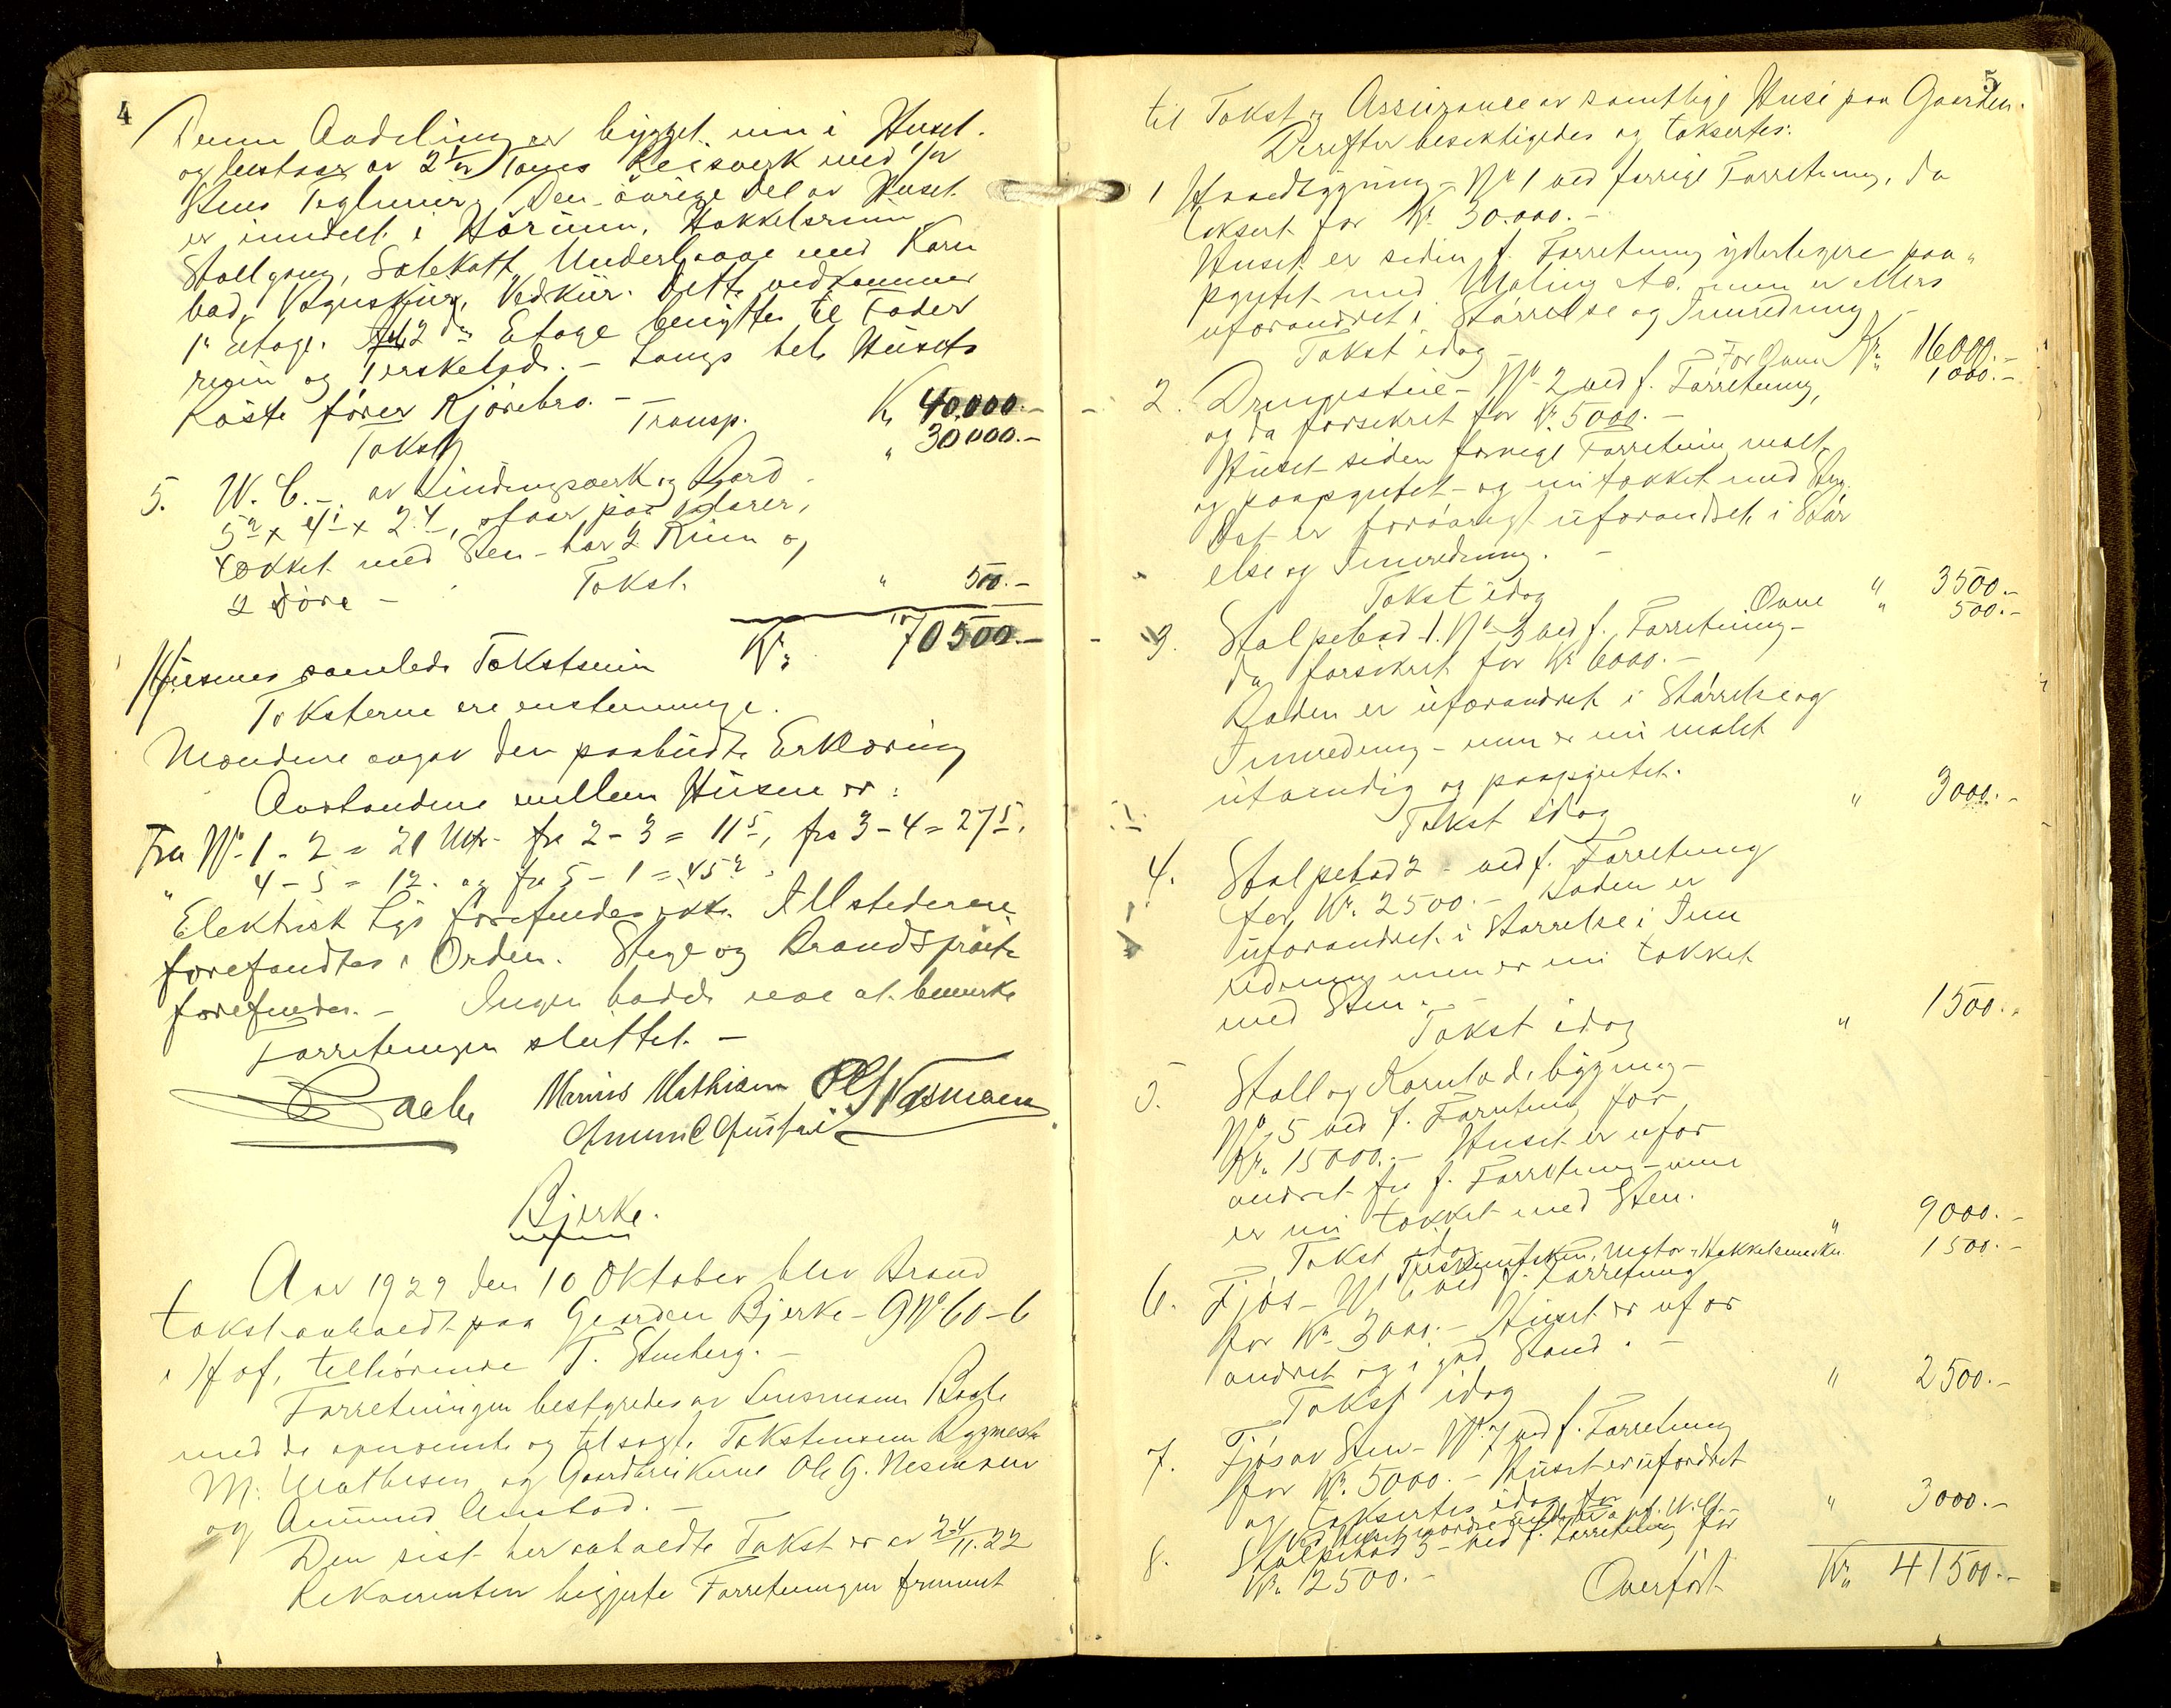 4
Denne Avdeling er bygget inn i Huset.
og bestaar av 2 1/2 Toms Reisverk med 1/2
Stens Teglmur. Den övrige Del av Huset
er inndelt i Hörum, Hakkelsrum
Stallgang, Underlaave med Korn
bod, Vognskur, Vedskur. Dette vedkommer
1ste Etage. 2den Etage benyttes til Foder
rum og Treskelode. - Langs hele Husets
Röste förer Kjörebro. -
Takst Transp. Kr. 40.000.-
" 30000.-
5. W.C. - av Bindingsverk og Bord
5.2 x 4.1 x 2.4, staar paa Pilarer,
tekket med Sten - har 2 Rum og
2 Döre - Takst. " 500.-
Husenes samlede Takstsum Kr. 70500.-
Taksterne ere enstemmige.
Mændene avgav den paabudte Erklæring
Avstandene mellem Husene er:
Fra No 1 - 2 = 21 Mtr. fra 2 - 3 = 11.5, fra 3 - 4 = 27.5,
" 4 - 5 = 12. og fra 5 - 1 = 45.2.
Elektrisk Lys forefindes ikke. Ildstederne
forefandtes i Orden. Stige og Brandspröite
forefindes. - Ingen hadde noe at bemerke
Forretningen sluttet. -
Bache Marius Mathisen Ole G Nesmoen
Bjerke.
Aar 1929 den 10 Oktober blev Brand
takst avholdt paa Gaarden Bjerke - GNo 60 - 6
i Hof, tilhörende T. Stenberg. -
Forretningen bestyredes av Lensmann Bache
med de opnevnte og tilsagte Takstmenn Bygmester
M. Mathisen og Gaardbrukerne Ole G. Nesmoen
og Amund Anstad. -
Den sist her avholdte Takst er av 24/11.22
Rekvirenten begjerte Forretningen fremmet
5
til Takst og Assurance av samtlige Huse paa Gaarden.
Derefter besiktigedes og taksertes:
1 Hovedbygning - No 1 ved forrige Forretning, da
taksert for Kr. 30.000.-
Huset er siden f. Forretning yderligere paa"
pyntet med Maling etc. men er ellers
uforandret i Störrelse og Innredning -
Takst idag Kr. 16000.-
For Ovne " 1000.-
2. Drengestue - No 2 ved f. Forretning,
og da forsikret for Kr. 5000.-
Huset siden forrige Forretning malt
og paapyntet - og nu tækket med Sten.
Det er forövrigt uforandret i Störr
else og Innredning. -
Takst idag " 3500.-
Ovne " 500.-
3. Stolpebod 1. No 3 ved f. Forretning -
da forsikret for Kr. 6000.-
Boden er uforandret i Störrelse og
Innredning - men er nu malet
utvendig og paapyntet.
Takst idag " 3000.-
4. Stolpebod 2 - ved f. Forretning
for Kr. 2500.- Boden er
uforandret i Störrelse i Inn
redning men er nu tækket
med Sten. -
Takst idag " 1500.-
5. Stall og Kornladebygning -
No 5 ved f. Forretning for
Kr. 15000.- Huset er ufor
andret fra f. Forretning - men
er nu tækket med Sten.
Takst idag " 9000.-
Treskemaskin, Motor, Hakkelsmaskin " 1500.-
6. Fjös - No 6 ved f. Forretning
for Kr. 3000.- Huset er ufor
andret og i god Stand. -
Takst idag " 2500.-
7. Fjös av Sten - No 7 ved f. Forretning
for Kr. 5000.- Huset er uforandret
og taksertes idag for " 3000.-
8. Stolpebod 3 - ved f. Forretning for
Kr. 2500.-
Overfört Kr. 41500.-